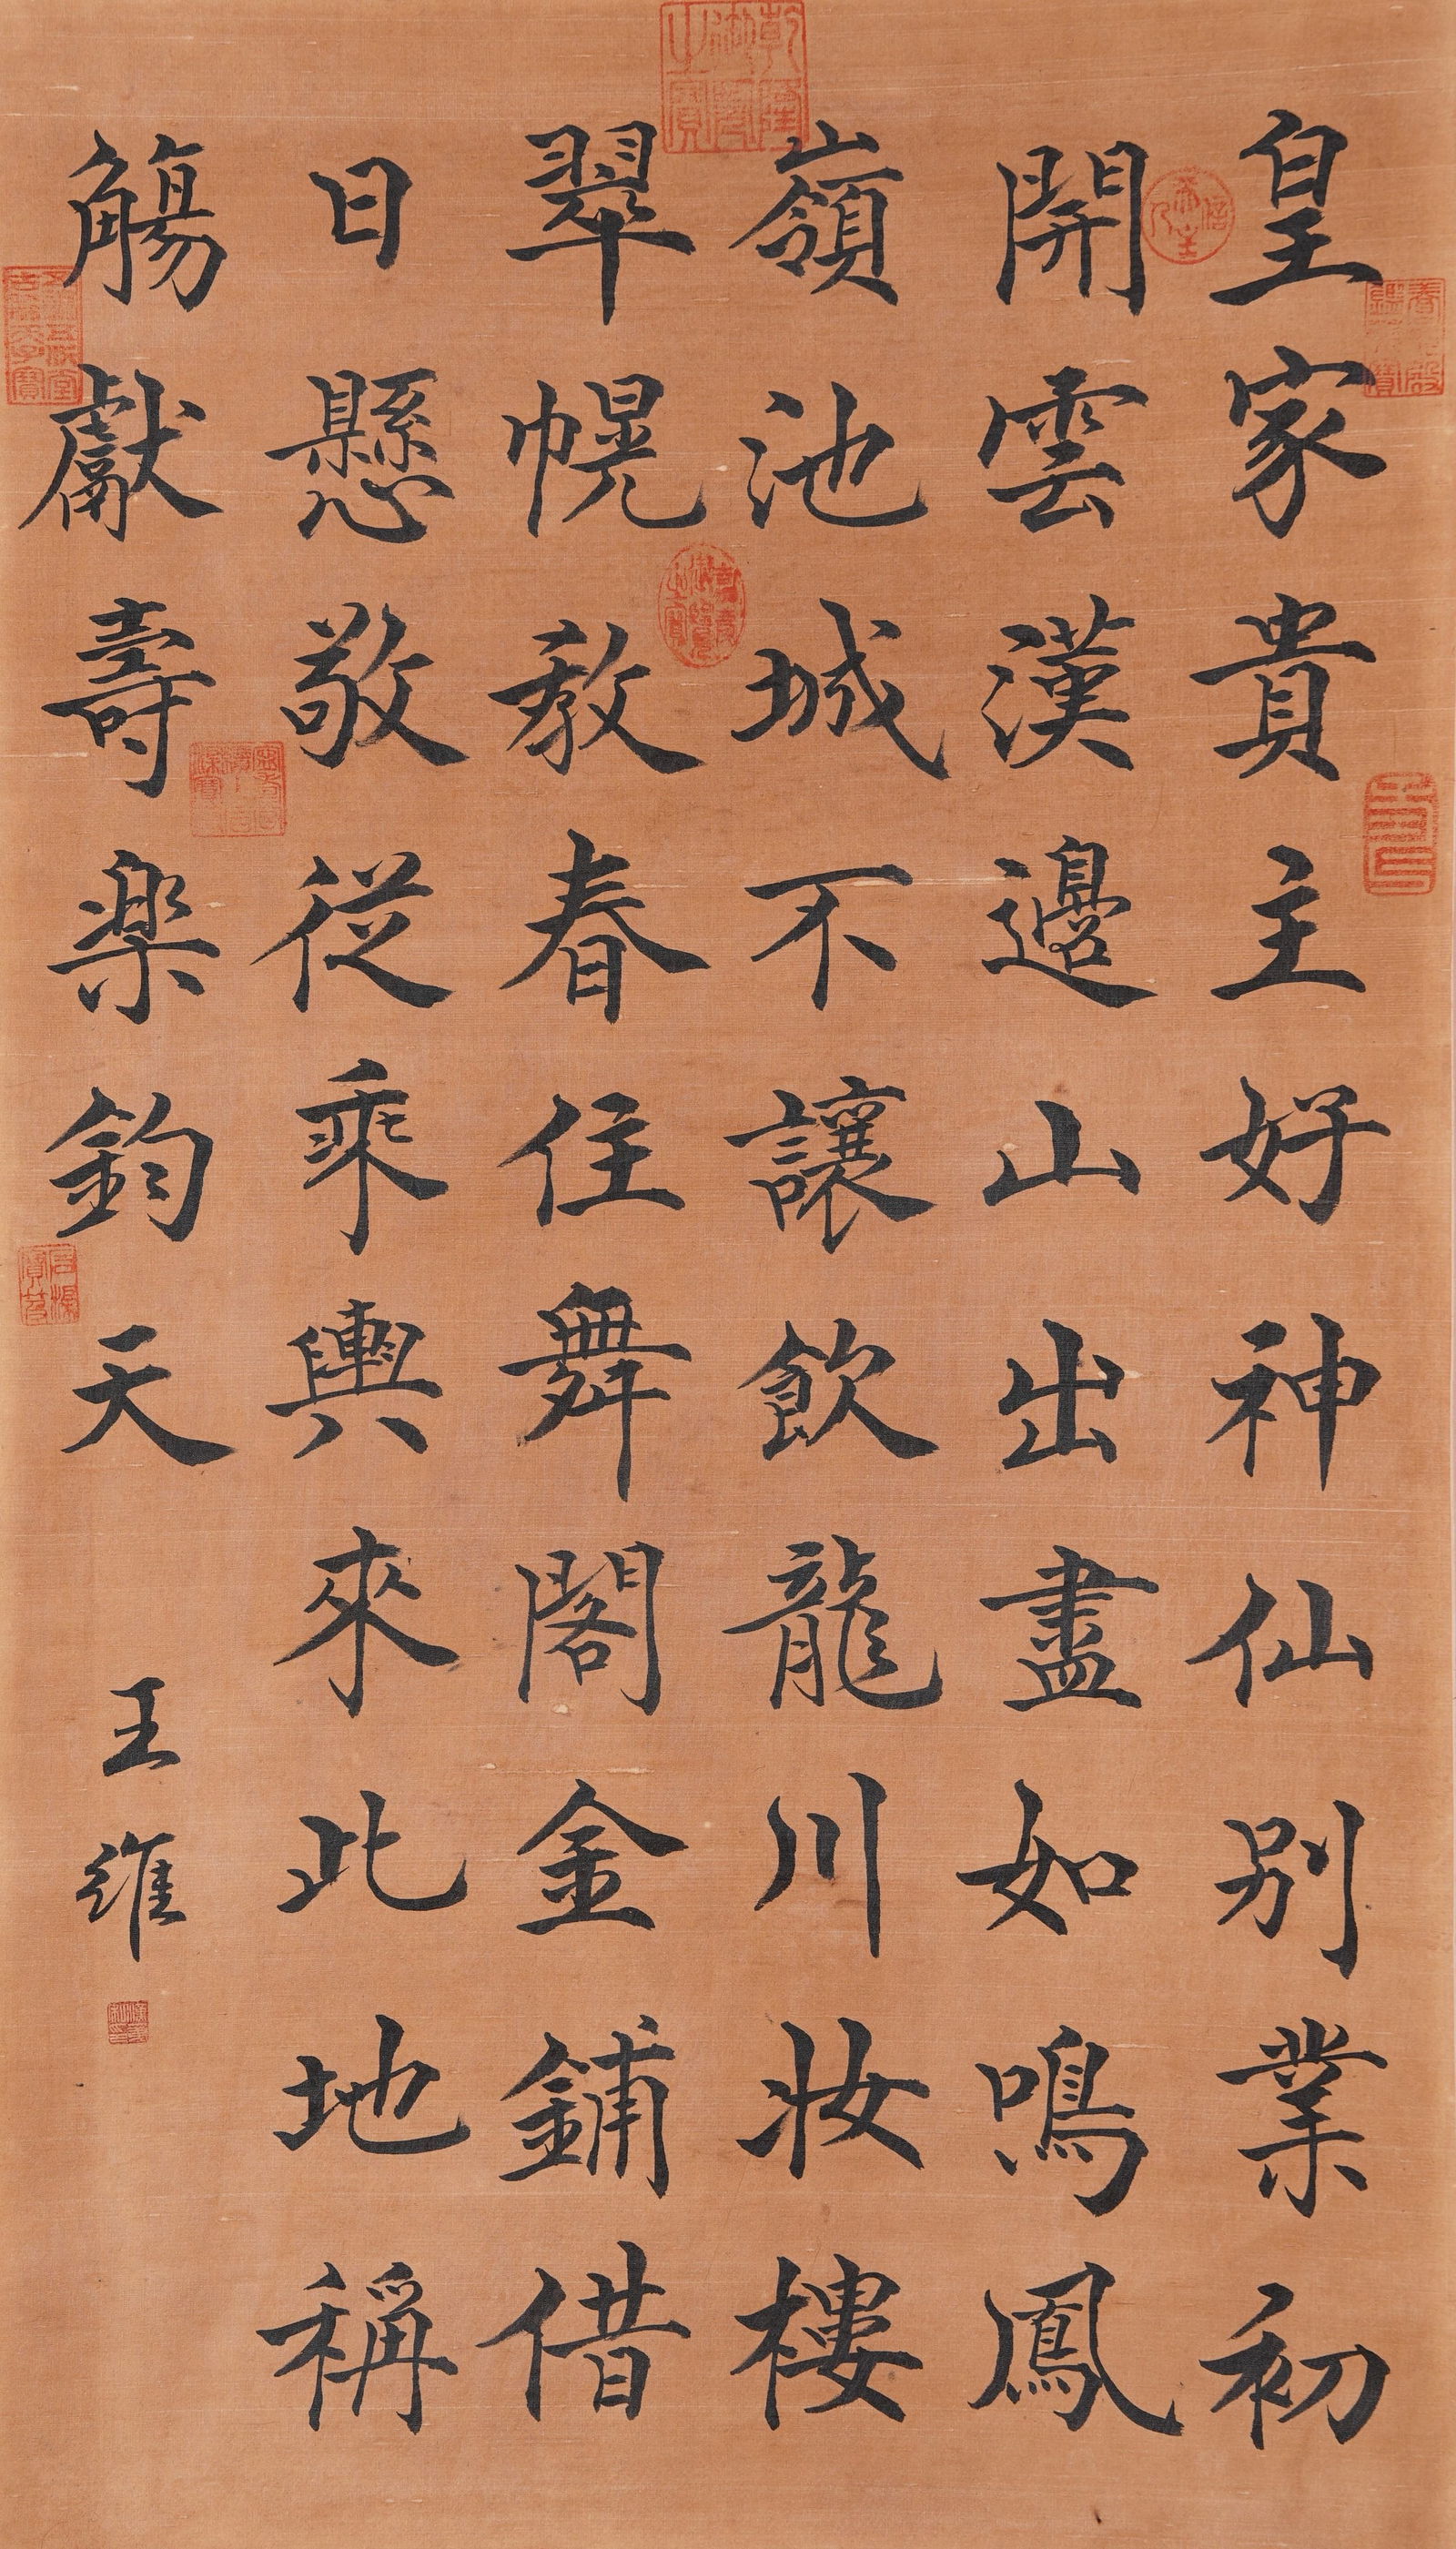 皇家貴主好神仙别業初
開雲漢邊山出盡如鳴鳳
嶺池城不讓飲龍川妝樓
翠幌教春住舞閣金鋪借
日懸敬從乘輿來此地稱
觴獻壽樂鈞天
王維
乾隆御覽之寶